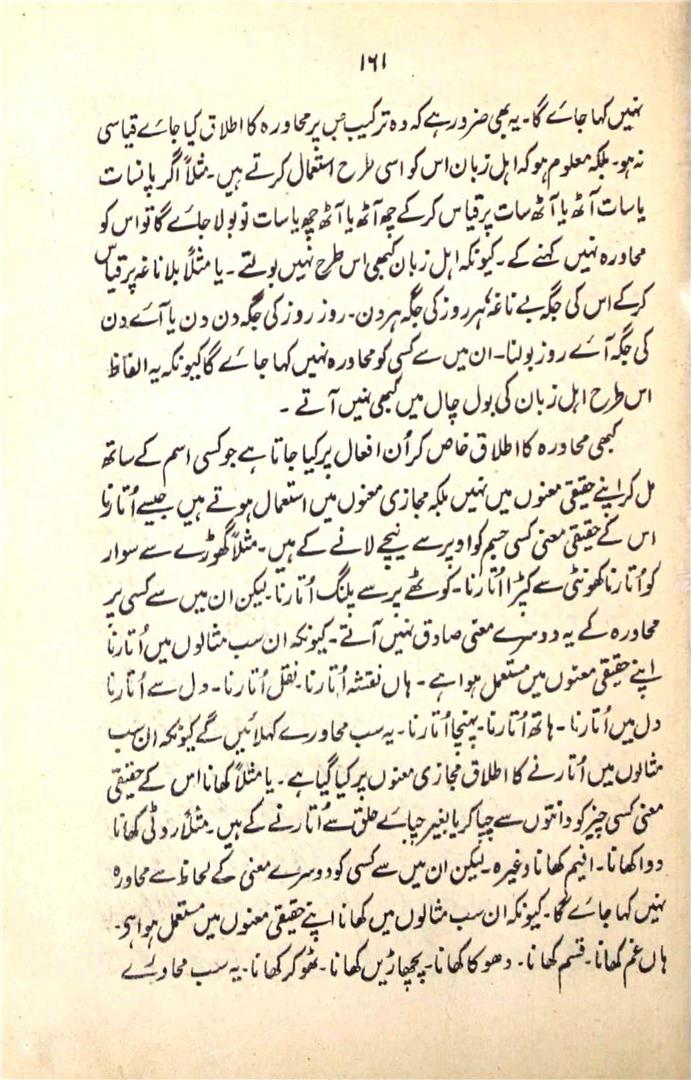 ۱۶۱
نہیں کہا جائے گا۔ یہ بھی ضرور ہے کہ وہ ترکیب جس پر محاورہ کا اطلاق کیا جائے قیاسی
نہ ہو۔ بلکہ معلوم ہو کہ اہل زبان اس کو اسی طرح استعمال کرتے ہیں۔ مثلاً اگر پانسات
یا سات آٹھ یا آٹھ سات پر قیاس کر کے چھ آٹھ یا آٹھ چھ یا سات نو بولا جائے گا تو اس کو
محاورہ نہیں کہنے کے۔ کیونکہ اہل زبان کبھی اس طرح نہیں بولتے۔ یا مثلاً بلا ناغہ پر قیاس
کر کے اس کی جگہ بے ناغہ، ہر روز کی جگہ ہر دن۔ روز روز کی جگہ دن دن یا آئے دن
کی جگہ آئے روز بولنا۔ ان میں سے کسی کو محاورہ نہیں کہا جائے گا کیونکہ یہ الفاظ
اس طرح اہل زبان کی بول چال میں کبھی نہیں آتے ۔
کبھی محاورہ کا اطلاق خاص کر اُن افعال پر کیا جاتا ہے جو کسی اسم کے ساتھ
مل کر اپنے حقیقی معنوں میں نہیں بلکہ مجازی معنوں میں استعمال ہوتے ہیں جیسے اُتارنا
اس کے حقیقی معنی کسی جسم کو اوپر سے نیچے لانے کے ہیں۔ مثلاً گھوڑے سے سوار
کو اُتارنا کھونٹی سے کپڑا اُتارنا۔ کوٹھے پر سے پلنگ اُتارنا۔ لیکن ان میں سے کسی پر
محاورہ کے یہ دوسرے معنی صادق نہیں آتے۔ کیونکہ ان سب مثالوں میں اُتارنا
اپنے حقیقی معنوں میں مستعمل ہوا ہے ۔ ہاں نقشہ اُتارنا۔ نقل اُتارنا۔ دل سے اُتارنا
دل میں اُتارنا ۔ ہاتھ اُتارنا۔ پہنچا اُتارنا۔ یہ سب محاورے کہلائیں گے کیونکہ ان سب
مثالوں میں اُتارنے کا اطلاق مجازی معنوں پر کیا گیا ہے ۔ یا مثلاً کھانا اس کے حقیقی
معنی کسی چیز کو دانتوں سے چبا کر یا بغیر چبائے حلق سے اُتارنے کے ہیں۔ مثلاً روٹی کھانا
دوا کھانا۔ افیم کھانا وغیرہ۔ لیکن ان میں سے کسی کو دوسرے معنی کے لحاظ سے محاورہ
نہیں کہا جائے گا۔ کیونکہ ان سب مثالوں میں کھانا اپنے حقیقی معنوں میں مستعمل ہوا ہے۔
ہاں غم کھانا۔ قسم کھانا۔ دھوکا کھانا۔ پچھاڑیں کھانا۔ ٹھوکر کھانا۔ یہ سب محاورے